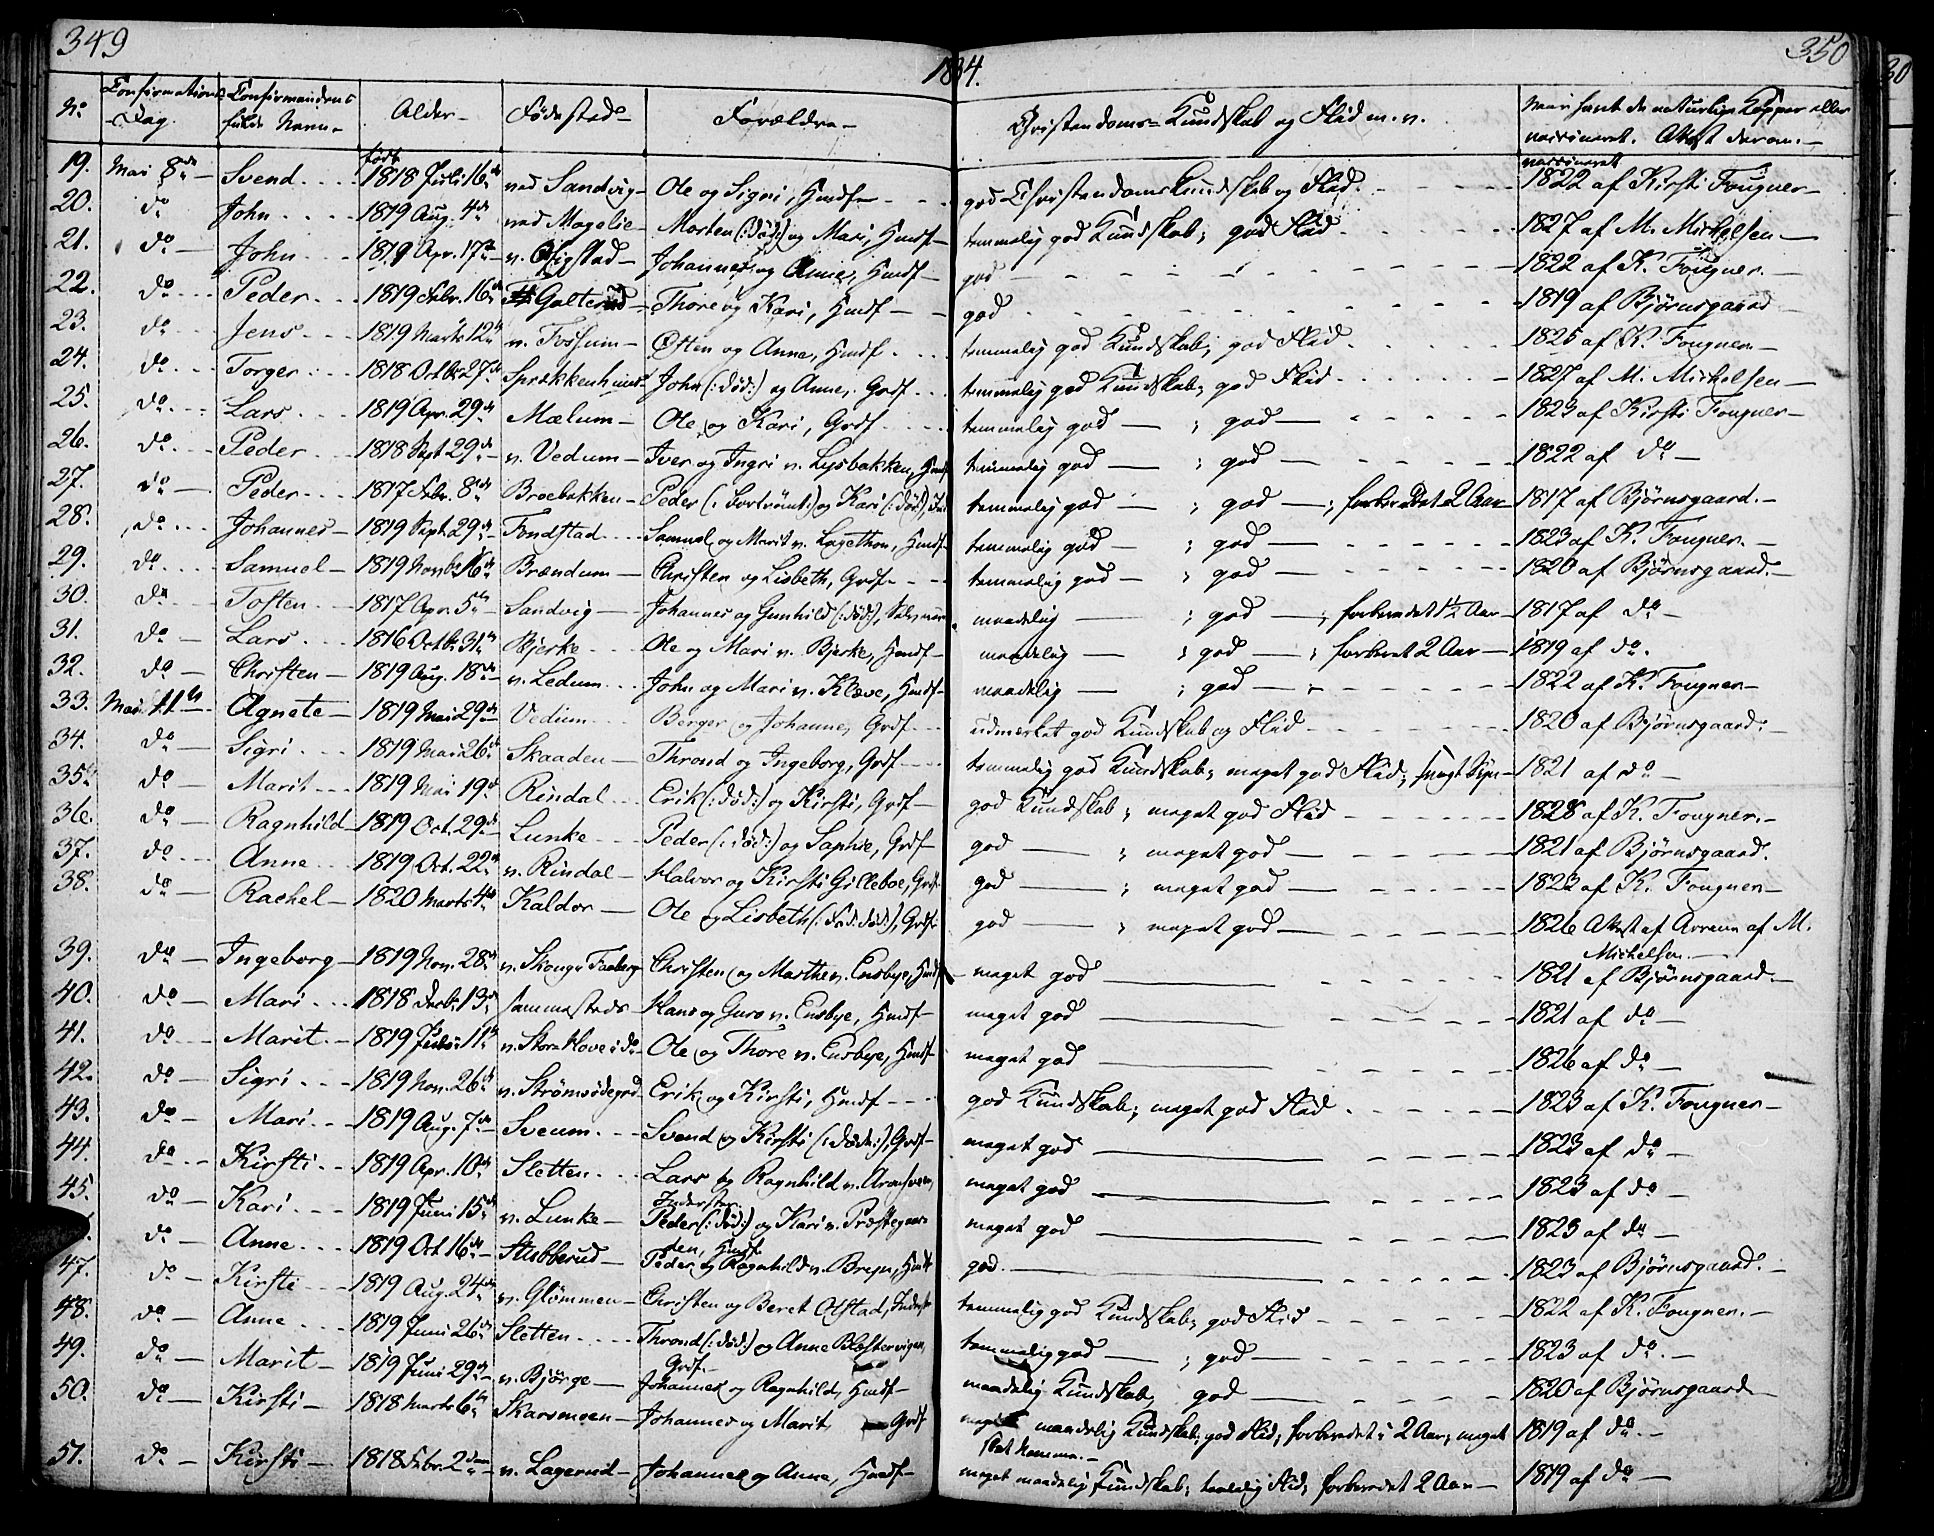 349
1834.
350
No
Confirmations Dag.
Confirmandens fulde Navn
Alder
Födested
Forældre
Christendoms-Kundskab og Flid m. v.
Naar havt de naturlige Kopper eller vaccineret. Attest derom.
19. Mai 8de Svend født 1818 Juli 16de ved Sandvig Ole og Sigri, Huusf god Christendoms Kundskab og Flid. vaccineret 1822 af Kirsti Fougner
20. do John 1819 Aug. 4de ved Magelie Morten (:död:) og Mari, Huusf temmelig god Kundskab; god Flid 1827 af M. Michelsen
21. do John 1819 Apr. 17de v. Olstad Johannes og Anne, Huusf god 1822 af K. Fougner.
22. do Peder 1819 Febr. 16de Galterud Thore og Kari, Huusf god 1819 af Bjørnsgaard
23. do Jens 1819 Marts 12te v. Fossum Often og Anne, Huusf temmelig god Kundskab; god Flid. 1825 af K. Fougner
24. do Torger 1818 Octbr 27de Sprækkenhuus John (:död:) og Anne, Grdf temmelig god Kundskab; god Flid 1827 af M. Michelsen
25. do Lars 1819 Apr. 29de Mælum Ole og Kari, Grdf temmelig god ; god 1823 af Kirsti Fougner
26. do Peder 1818 Sept 29de v. Vedum Iver og Ingri v. Lysbakken, Huusf temmelig god ; god 1822 af do
27. do Peder 1817 Febr. 8de Broebakken Peder (: Fortrömt:) og Kari (:död:), temmelig god ; god ; forberedet 2 Aar 1817 af Bjørnsgaard.
28. do Johannes 1819 Sept. 29de Fondstad Samuel og Marit v. Lagethon, Huusf temmelig god ; god 1823 af K. Fougner.
29. do Samuel 1819 Novbr 16de Brændum Christen og Lisbeth, Grdf temmelig god ; god 1820 af Bjørnsgaard.
30. do Tosten 1817 Apr. 5te Sandvig Johannes og Gunhild (:död:), maadelig ; god ; forberedet 1½ Aar 1817 af do
31. do Lars 1816 Octbr 31te Bjerke Ole og Mari v. Bjerke, Huusf maadelig ; god ; forberet 2 Aar 1819 af do.
32. do Christen 1819 Aug. 18de v. Ledum John og Mari v. Kleve, Huusf maadelig ; god ; 1822 af K. Fougner
33. Mai 11te Agnete 1819 Mai 29de Vedum Berger og Johanne, Grdf udmerket god Kundskab og Flid 1820 af Bjørnsgaard.
34. do Sigri 1819 Mai 26de Skaaden Thrond og Ingeborg, Grdf temmelig god Kundskab; meget god Flid; svagt Syn 1821 af do
35. do Marit 1819 Mai 19de Rindal Erik (:död:) og Kirsti, Grdf god Kundskab ; meget god Flid 1828 af K. Fougner.
36. do Ragnhild 1819 Oct. 29de Lunke Peder (:död:) og Saphie, Grdf god ; meget god 1821 af Bjørnsgaard.
37. do Anne 1819 Oct. 22de v. Rindal Halvor og Kirsti Gilleboe, Grdf god ; meget god 1822 af K. Fougner
38. do Rachel 1820 Marts 4de Kaldor Ole og Lisbeth (:död:), Grdf god ; meget god 1826 Attest af Avreun af M. Michelsen.
39. do Ingeborg 1819 Nov. 28de v. Skouge Faaberg Christen og Marthe v. Ensbye, Huusf meget god 1821 af Bjørnsgaard.
40. do Mari 1818 Decbr 13de sammesteds Hans og Guro v. Ensbye, Huusf meget god 1821 af do
41. do Marit 1819 Juli 11te v. Store Hove i do Ole og Thore v. Ensbye, Huusf meget god 1826 af do
42. do Sigri 1819 Nov. 26de v. Strömsödegrd Erik og Kirsti, Huusf god Kundskab; meget god Flid 1823 af K. Fougner
43. do Mari 1819 Aug. 7de Sveum Svend og Kirsti (:Döde:), Grdf meget god 1823 af do
44. do Kirsti 1819 Apr. 10de Sletten Lars og Ragnhild v. Aronsveen, Inderster meget god 1823 af do
45. do Kari 1819 Juni 15de v. Lunke Peder (:död:) og Kari v. Præstegaarden, Huusf meget god 1823 af do
do Anne 1819 Oct 16de Stubberud Peder og Ragnhild v. Breje, Huusf god. 1823 af Bjørnsgaard.
47. do Kirsti 1819 Aug. 24de v. Glömmen Christen og Beret Olstad, Inderst temmelig god Kundskab; god Flid 1822 af K. Fougner.
48. do Anne 1819 Juni 26de Sletten Thrond (:död:) og Anne Klostervigen, Grdf temmelig god ; god 1823 af do.
49. do Marit 1819 Juni 29de v. Bjørge Johannes og Ragnhild, Huusf maadelig Kundskab, god 1820 af Bjørnsgaard
50. do Kirsti 1818 Marts 6te Skarsmoen Johannes og Marit Grdf meget maadelig Kundskab; god Flid; forberedet i 2 Aar; meget slet Nemme. 1819 af do.
51. do Kirsti 1818 Febr. 2den v. Lagerud Johannes og Anne, Huusf meget maadelig Kundskab; taalelig Flid; forberedet 2 Aar 1819 af do